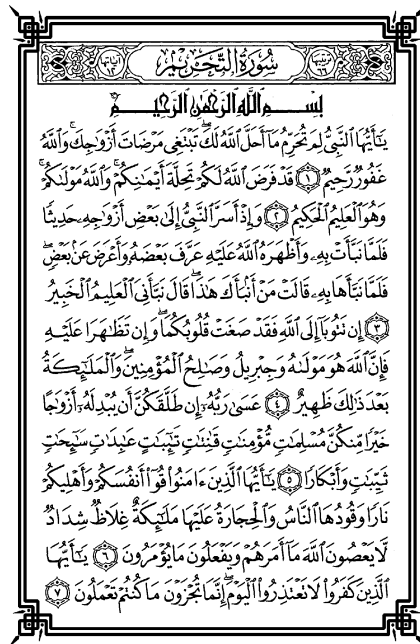 ترتيبها ٦٦ سُورَةُ التَّحْرِيمِ آياتها ١٢
بِسْمِ اللَّهِ الرَّحْمَٰنِ الرَّحِيمِ
يَٰٓأَيُّهَا ٱلنَّبِىُّ لِمَ تُحَرِّمُ مَآ أَحَلَّ ٱللَّهُ لَكَ ۖ تَبْتَغِى مَرْضَاتَ أَزْوَٰجِكَ ۚ وَٱللَّهُ
غَفُورٌ رَّحِيمٌ ١ قَدْ فَرَضَ ٱللَّهُ لَكُمْ تَحِلَّةَ أَيْمَٰنِكُمْ ۚ وَٱللَّهُ مَوْلَىٰكُمْ ۖ
وَهُوَ ٱلْعَلِيمُ ٱلْحَكِيمُ ٢ وَإِذْ أَسَرَّ ٱلنَّبِىُّ إِلَىٰ بَعْضِ أَزْوَٰجِهِۦ حَدِيثًا
فَلَمَّا نَبَّأَتْ بِهِۦ وَأَظْهَرَهُ ٱللَّهُ عَلَيْهِ عَرَّفَ بَعْضَهُۥ وَأَعْرَضَ عَنۢ بَعْضٍ ۖ
فَلَمَّا نَبَّأَهَا بِهِۦ قَالَتْ مَنْ أَنۢبَأَكَ هَٰذَا ۖ قَالَ نَبَّأَنِىَ ٱلْعَلِيمُ ٱلْخَبِيرُ
٣ إِن تَتُوبَآ إِلَى ٱللَّهِ فَقَدْ صَغَتْ قُلُوبُكُمَا ۖ وَإِن تَظَٰهَرَا عَلَيْهِ
فَإِنَّ ٱللَّهَ هُوَ مَوْلَىٰهُ وَجِبْرِيلُ وَصَٰلِحُ ٱلْمُؤْمِنِينَ ۖ وَٱلْمَلَٰٓئِكَةُ
بَعْدَ ذَٰلِكَ ظَهِيرٌ ٤ عَسَىٰ رَبُّهُۥٓ إِن طَلَّقَكُنَّ أَن يُبْدِلَهُۥٓ أَزْوَٰجًا
خَيْرًا مِّنكُنَّ مُسْلِمَٰتٍ مُّؤْمِنَٰتٍ قَٰنِتَٰتٍ تَٰٓئِبَٰتٍ عَٰبِدَٰتٍ سَٰٓئِحَٰتٍ
ثَيِّبَٰتٍ وَأَبْكَارًا ٥ يَٰٓأَيُّهَا ٱلَّذِينَ ءَامَنُوا۟ قُوٓا۟ أَنفُسَكُمْ وَأَهْلِيكُمْ
نَارًا وَقُودُهَا ٱلنَّاسُ وَٱلْحِجَارَةُ عَلَيْهَا مَلَٰٓئِكَةٌ غِلَاظٌ شِدَادٌ
لَّا يَعْصُونَ ٱللَّهَ مَآ أَمَرَهُمْ وَيَفْعَلُونَ مَا يُؤْمَرُونَ ٦ يَٰٓأَيُّهَا
ٱلَّذِينَ كَفَرُوا۟ لَا تَعْتَذِرُوا۟ ٱلْيَوْمَ ۖ إِنَّمَا تُجْزَوْنَ مَا كُنتُمْ تَعْمَلُونَ ٧